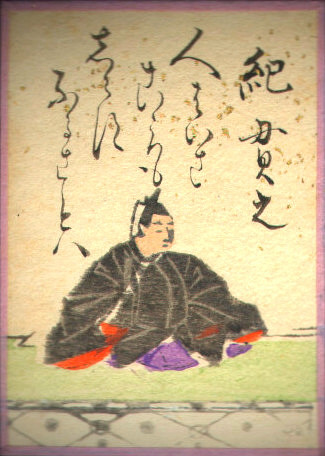 紀貫之
人はいさ
こゝろも
しらす
ふるさとハ